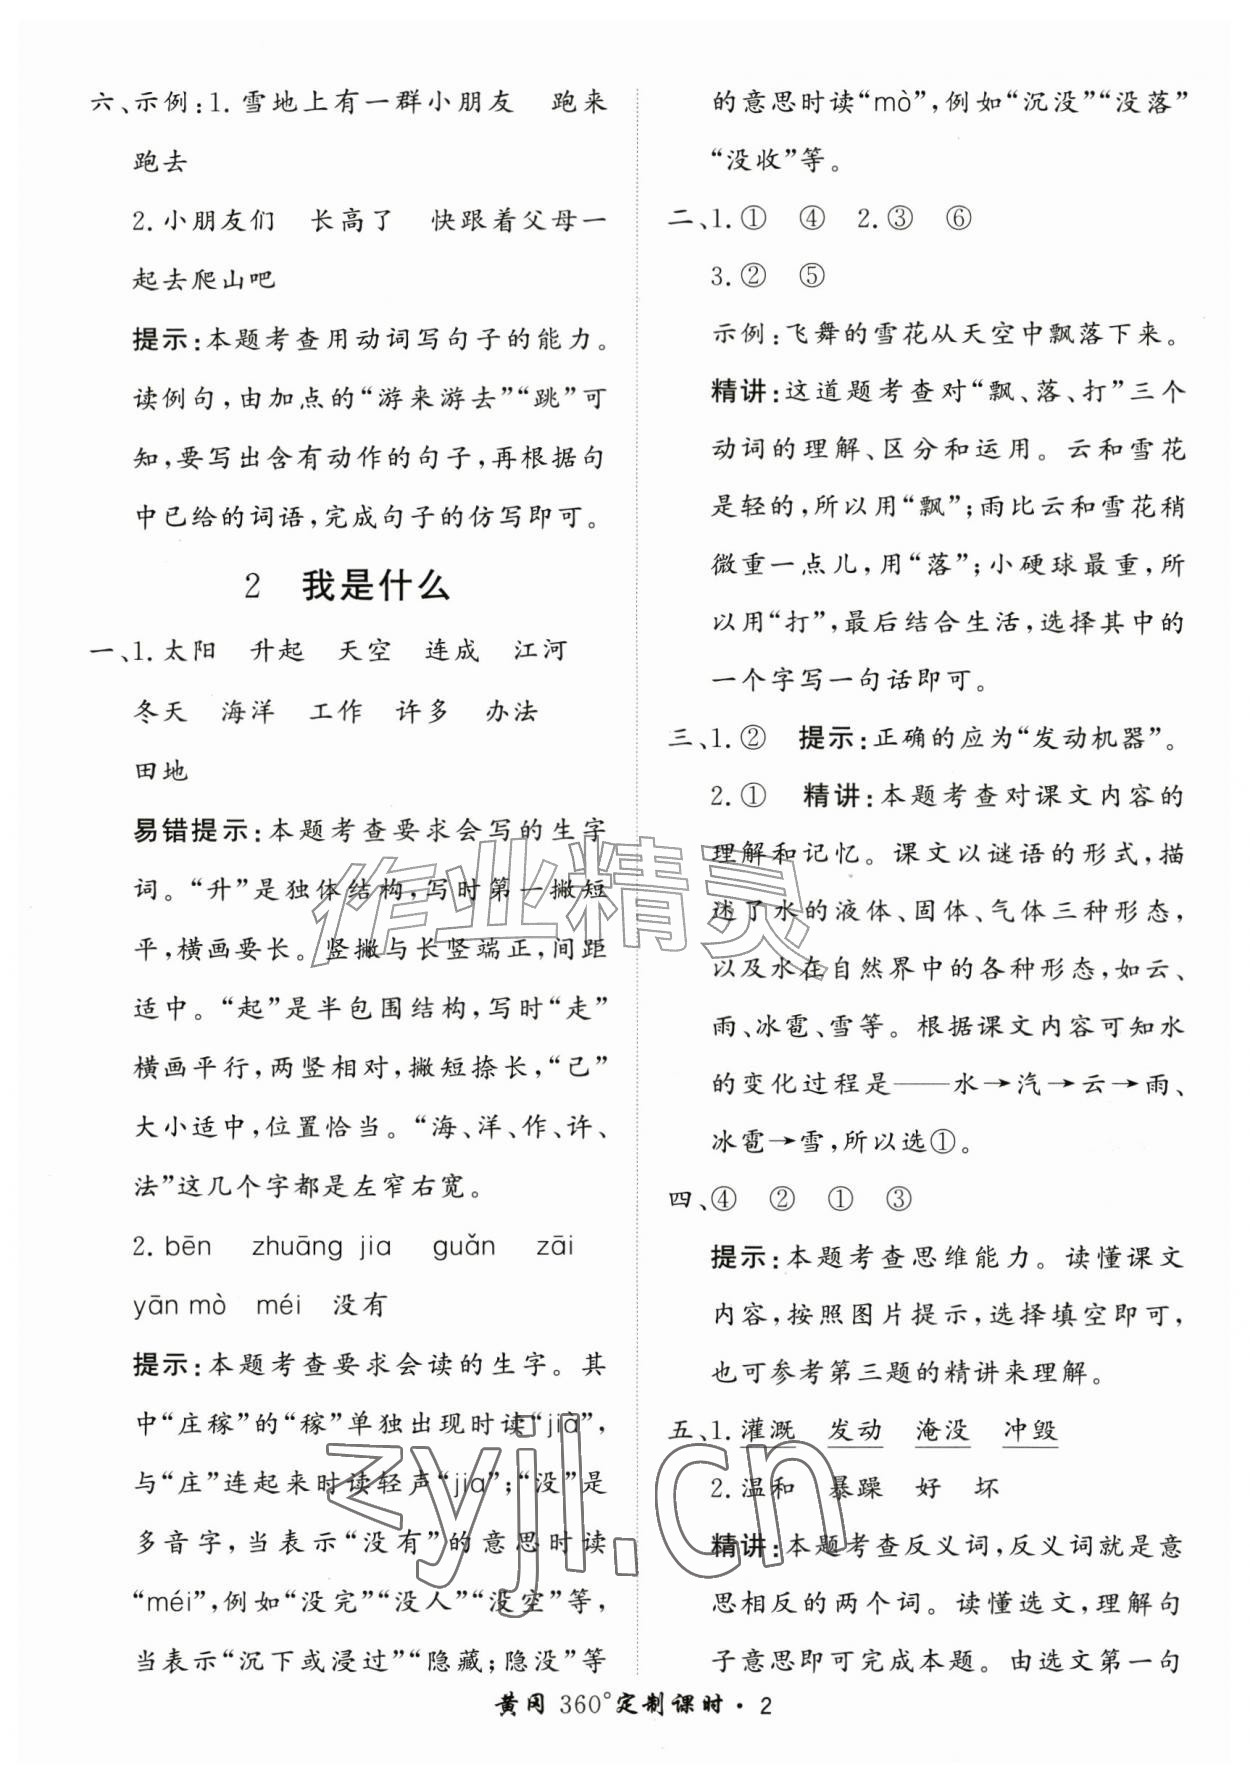 六、示例:1. 雪地上有一群小朋友　跑来
跑去
2. 小朋友们　长高了　快跟着父母一
起去爬山吧
提示:本题考查用动词写句子的能力。
读例句,由加点的“游来游去”“跳”可
知,要写出含有动作的句子,再根据句
中已给的词语,完成句子的仿写即可。
2　我是什么
一、1. 太阳　升起　天空　连成　江河
冬天　海洋　工作　许多　办法
田地
易错提示:本题考查要求会写的生字
词。“升”是独体结构,写时第一撇短
平,横画要长。竖撇与长竖端正,间距
适中。“起”是半包围结构,写时“走”
横画平行,两竖相对,撇短捺长,“己”
大小适中,位置恰当。“海、洋、作、许、
法”这几个字都是左窄右宽。
2. bēn　zhuāng jia　guǎn　zāi
yān mò　méi　没有
提示:本题考查要求会读的生字。其
中“庄稼”的“稼”单独出现时读“jià”,
与“庄”连起来时读轻声“jia”;“没”是
多音字,当表示“没有”的意思时读
“méi”,例如“没完”“没人”“没空”等,
当表示“沉下或浸过”“隐藏;隐没”等
的意思时读“mò”,例如“沉没”“没落”
“没收”等。
二、1. ①　④　2. ③　⑥
3. ②　⑤
示例:飞舞的雪花从天空中飘落下来。
精讲:这道题考查对“飘、落、打”三个
动词的理解、区分和运用。云和雪花
是轻的,所以用“飘”;雨比云和雪花稍
微重一点儿,用“落”;小硬球最重,所
以用“打”,最后结合生活,选择其中的
一个字写一句话即可。
三、1. ②　提示:正确的应为“发动机器”。
2. ①　精讲:本题考查对课文内容的
理解和记忆。课文以谜语的形式,描
述了水的液体、固体、气体三种形态,
以及水在自然界中的各种形态,如云、
雨、冰雹、雪等。根据课文内容可知水
的变化过程是——水→汽→云→雨、
冰雹→雪,所以选①。
四、④　②　①　③
提示:本题考查思维能力。读懂课文
内容,按照图片提示,选择填空即可,
也可参考第三题的精讲来理解。
五、1. 灌溉　发动　淹没　冲毁
2. 温和　暴躁　好　坏
精讲:本题考查反义词,反义词就是意
思相反的两个词。读懂选文,理解句
子意思即可完成本题。由选文第一句
作业精灵
zyjl.cn
黄冈 360°定制课时·2